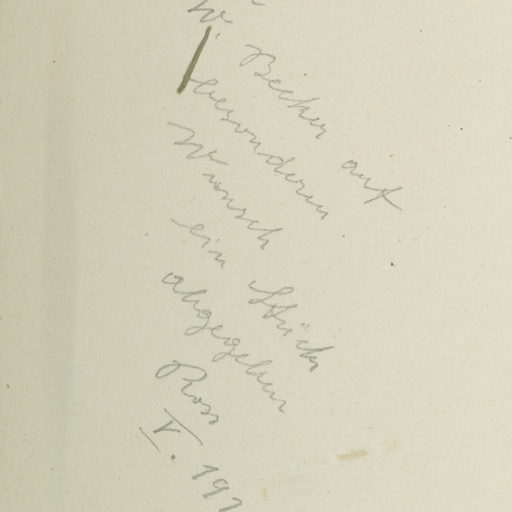 W. Becker auf
besonderen
Wunsch
ein Stück
abgegeben
Ross
V. 192